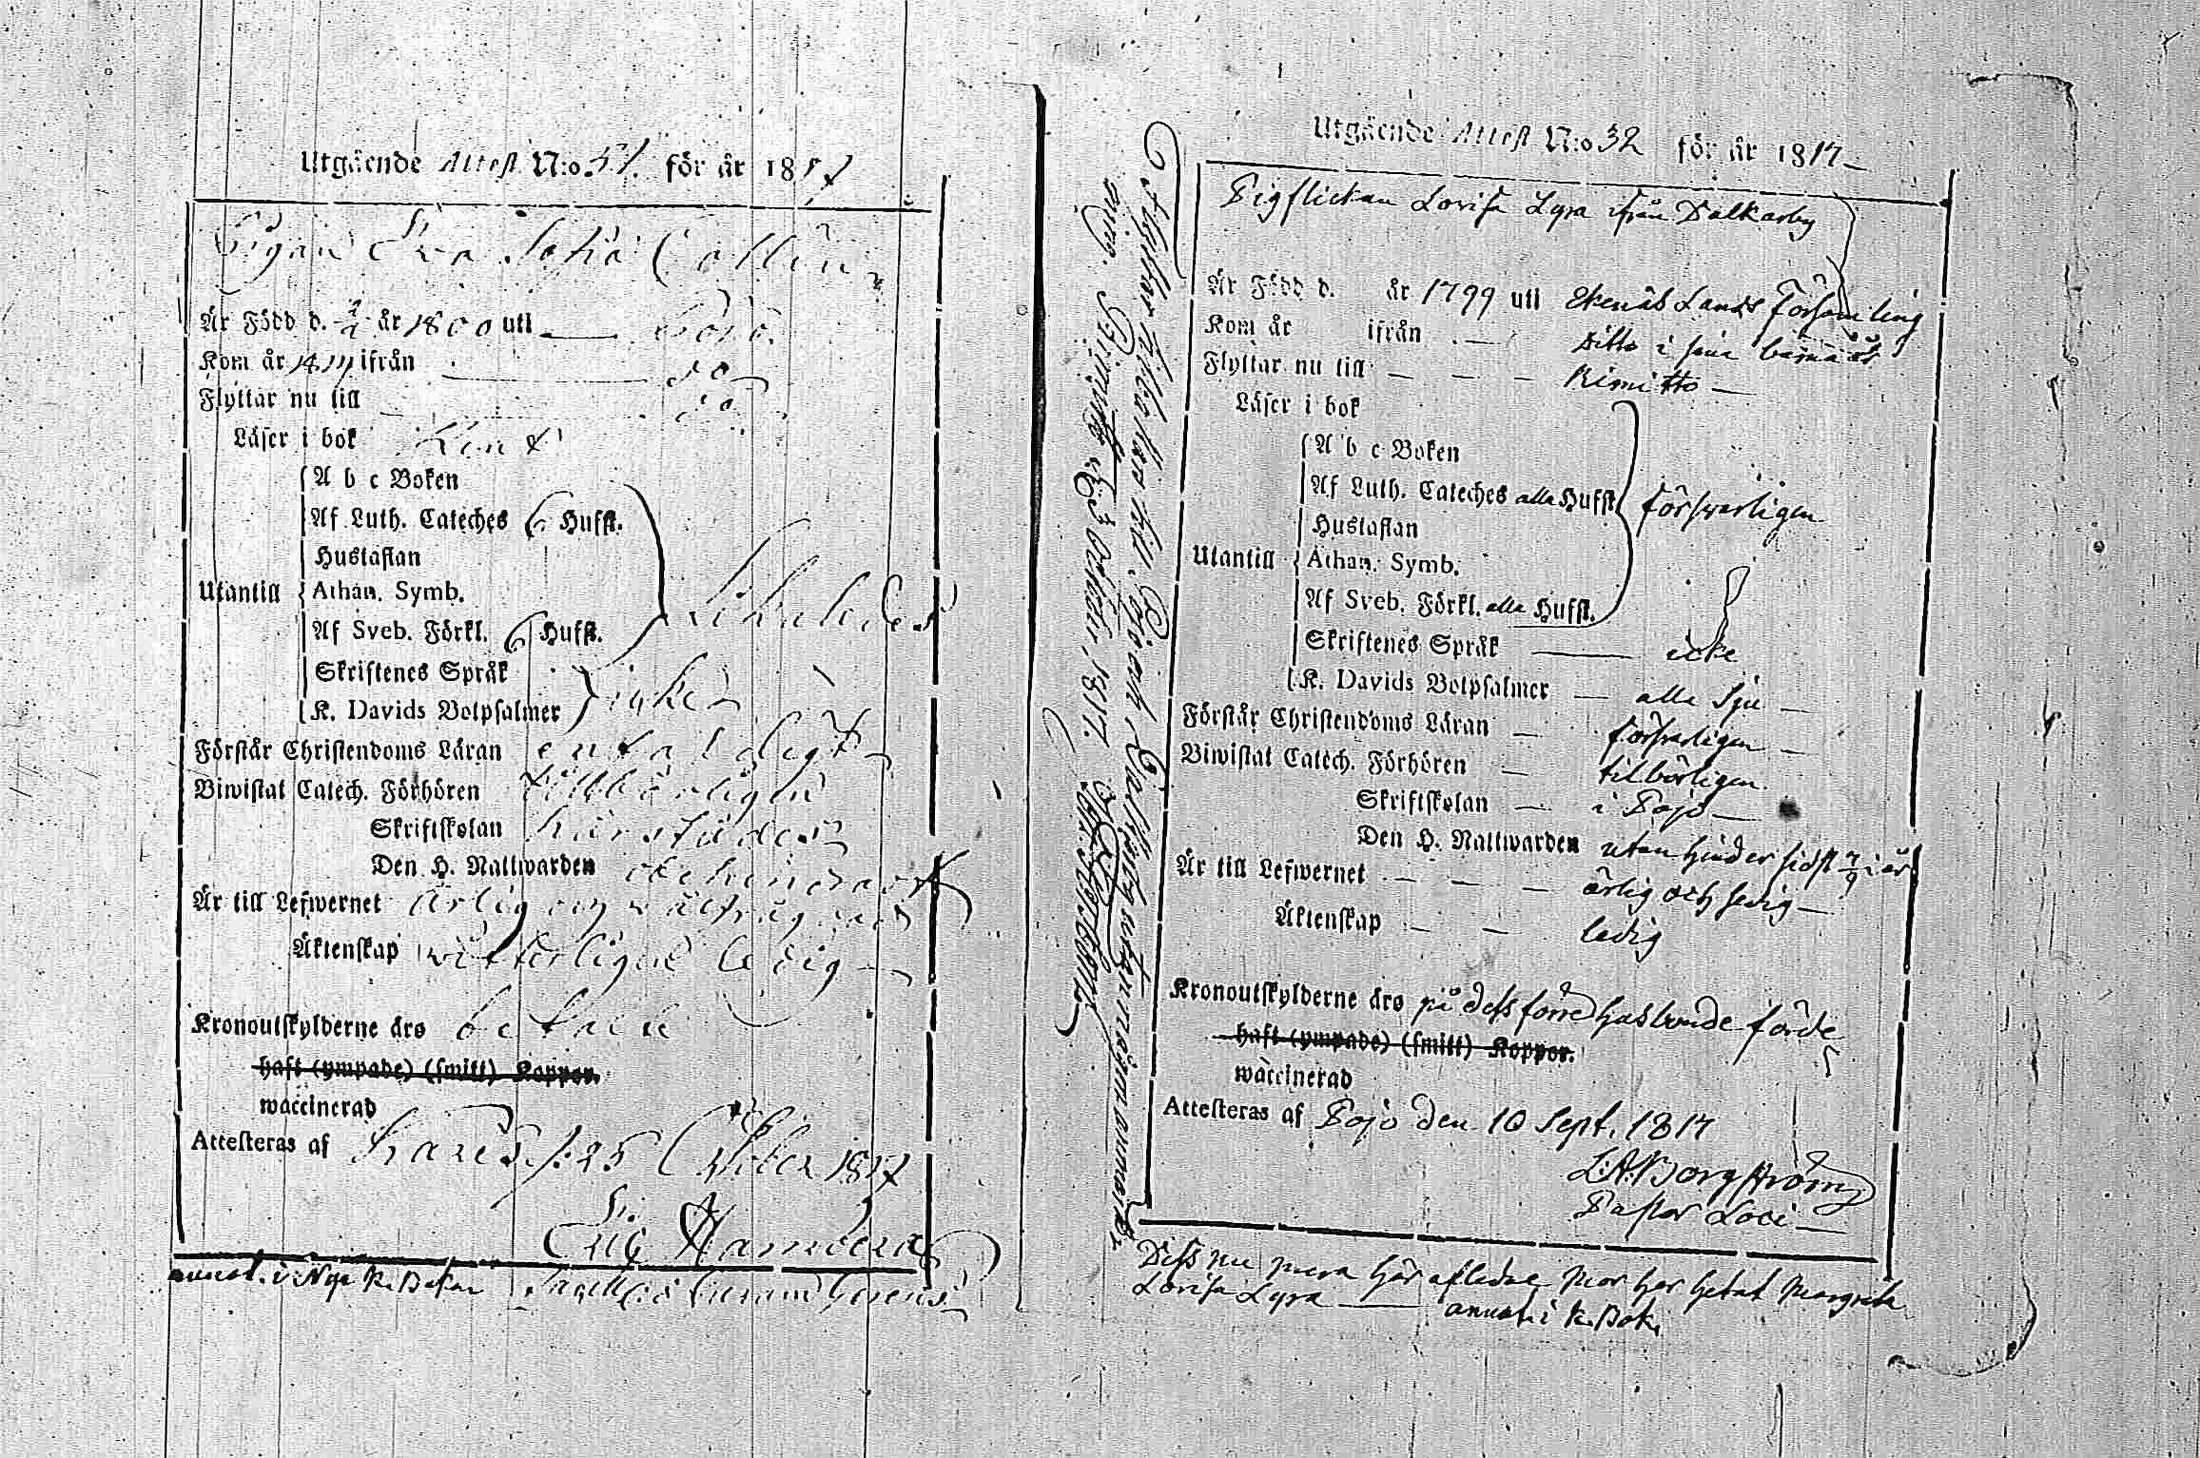 Utgående Attest N:o 51. för år 1817
Pigan Eva Sofia Collin
Är Född d. år 1800 uti Pojo
Kom år 1814 ifrån do
Flyttar nu till do
Läser i bok Rent
A b c Boken
Af Luth. Cateches 6 Hufst.
Hustaflan
Utantill Athan. Symb.
Af Sveb. Förkl. 6 Hufst.
Skriftenes Språk
K. Davids Botpsalmer icke
Förstår Christendoms Läran enfaldigt
Biwistat Catech. Förhören tillbörligen
Skriftskolan härstädes
Den H. Nattwarden
Är till Lefwernet ärlig och
Äktenskap witterligen ledig
Kronoutskylderne äro betalte
haft (ympade) (smitt) Koppor.
waccinerad
Attesteras af Karis d. 25 October 1817
annot. i Nya K. Boken
Utgående Attest N:o 32 för år 1817
Pigflickan Lovisa Lyra ifrån Dalkarby
Är Född d. år 1799 uti Ekenäs Lands Församling
Kom år ifrån Ditto i sina barna år
Flyttar nu till Kimitto
Läser i bok
A b c Boken
Af Luth. Cateches alla Hufst. försvarligen
Hustaflan
Utantill Athan. Symb.
Af Sveb. Förkl. alla Hufst.
Skriftenes Språk icke
K. Davids Botpsalmer alla sju
Förstår Christendoms Läran försvarligen
Biwistat Catech. Förhören tilbörligen
Skriftskolan i Pojo
Den H. Nattwarden utan hinder sidst 7/9 i år
Är till Lefwernet ärlig och sedig
Äktenskap ledig
Kronoutskylderne äro på dess förre husbonde förde
haft (ympade) (smitt) Koppor.
waccinerad
Attesteras af Pojo den 10 Sept. 1817
L:A:Borgström
Pastor Loci
Diss nu mera här aflidne Mor har hetat Margreta
Lovisa Lyra annot. i K. Bok.
Flyttar tillbakas till Pojo och utan någon anmärkning. Kimitto d. 3 October, 1817.